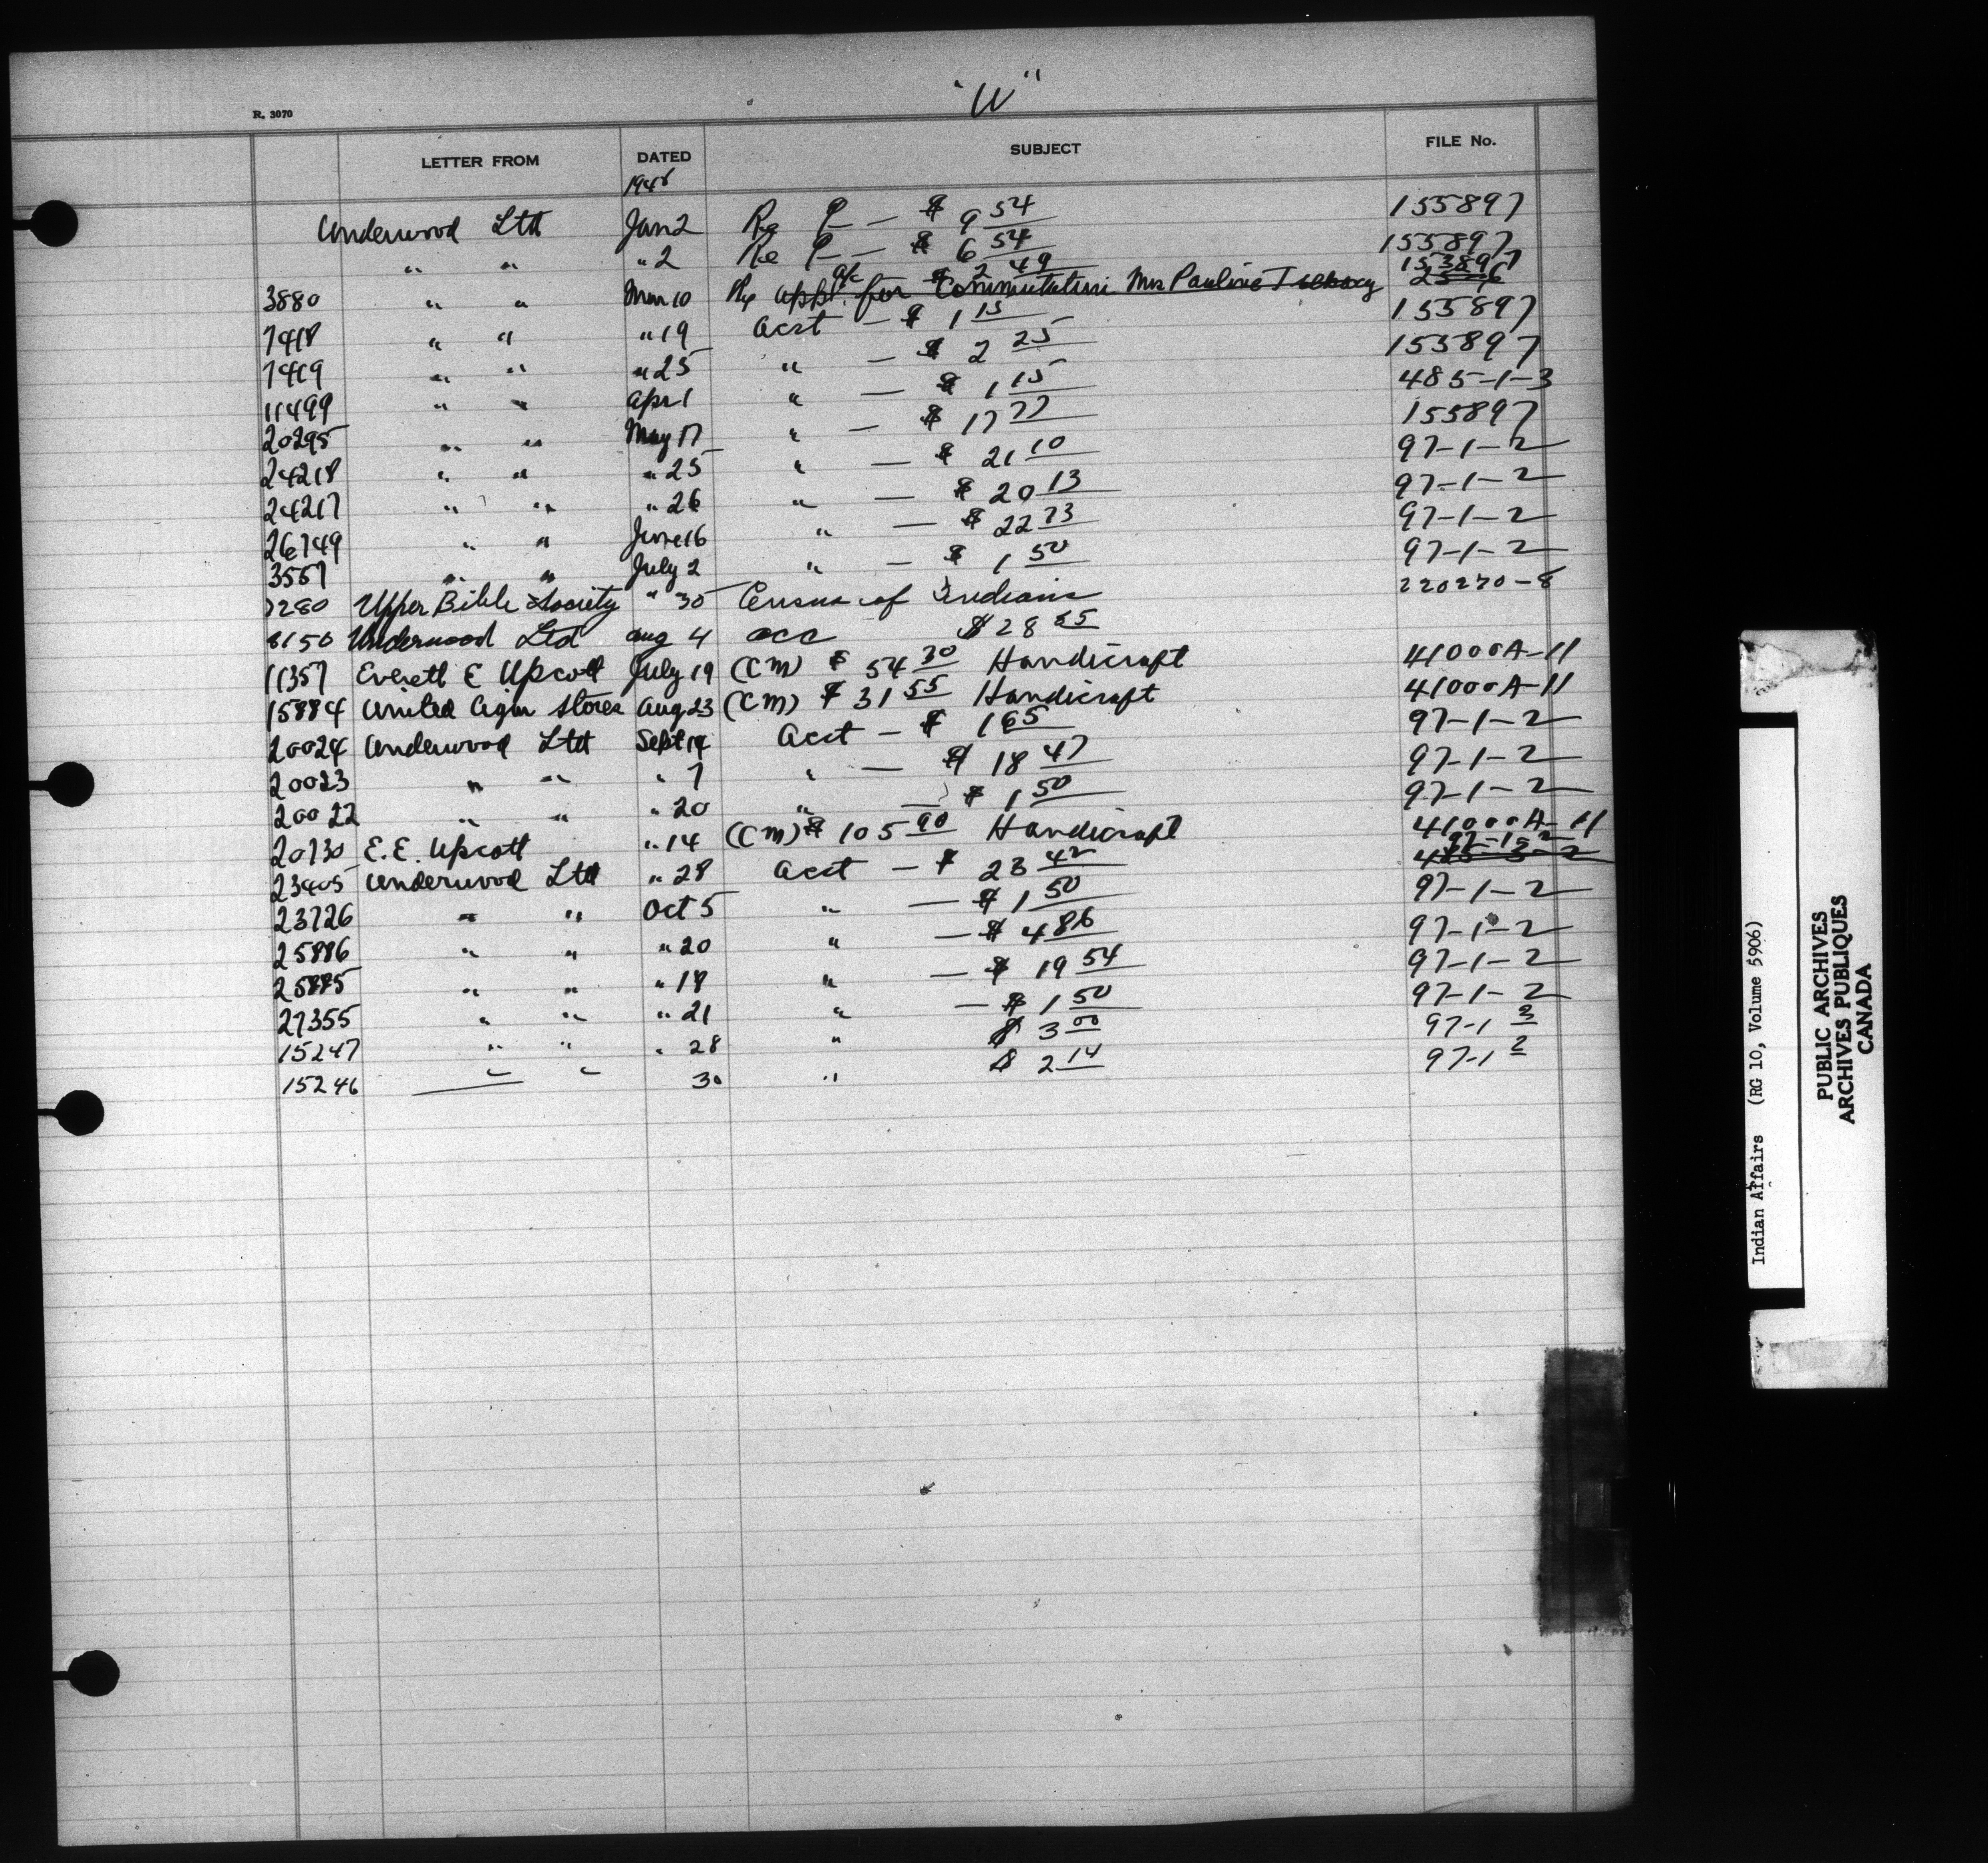 "U"
R. 3070
LETTER FROM DATED SUBJECT FILE No.
1948
Underwood Ltd Jan 2 Re P — $ 9 54 155897
" " " 2 Re P — $ 6 54 155897
a/c $ 2 49 155897
3880 " " Mar 10 Re appl. for Commutation Mrs Pauline
7418 " " " 19 Acct — $ 1 15 155897
7419 " " " 25 " — $ 2 25 155897
11499 " " Apr 1 " — $ 1 15 485-1-3
20295 " " May 17 " — $ 17 77 155897
24218 " " " 25 " — $ 21 10 97-1-2
24217 " " " 26 " — $ 20 13 97-1-2
26749 " " June 16 " — $ 22 73 97-1-2
3557 " " July 2 " — $ 1 50 97-1-2
7280 Upper Bible Society " 30 Census of Indians 220230-8
8150 Underwood Ltd Aug 4 acc $ 28 55
11357 Everett E Upcott July 19 (CM) $ 54 30 Handicraft 41000A-11
15884 United Cigar Stores Aug 23 (CM) $ 31 55 Handicraft 41000A-11
20024 Underwood Ltd Sept 14 Acct — $ 1 65 97-1-2
20023 " " " 7 " — $ 18 47 97-1-2
20022 " " " 20 " — $ 1 50 97-1-2
20730 E.E. Upcott " 14 (CM) $ 105 90 Handicraft 41000A-11
97-1-2
23405 Underwood Ltd " 28 Acct — $ 23 42 485-3-2
23726 " " Oct 5 " — $ 1 50 97-1-2
25886 " " " 20 " — $ 4 86 97-1-2
25885 " " " 18 " — $ 19 54 97-1-2
27355 " " " 21 " — $ 1 50 97-1-2
15247 " " " 28 " $ 3 00 97-1 3
15246 " " 30 " $ 2 14 97-1 2
Indian Affairs (RG 10, Volume 5906)
PUBLIC ARCHIVES
ARCHIVES PUBLIQUES
CANADA